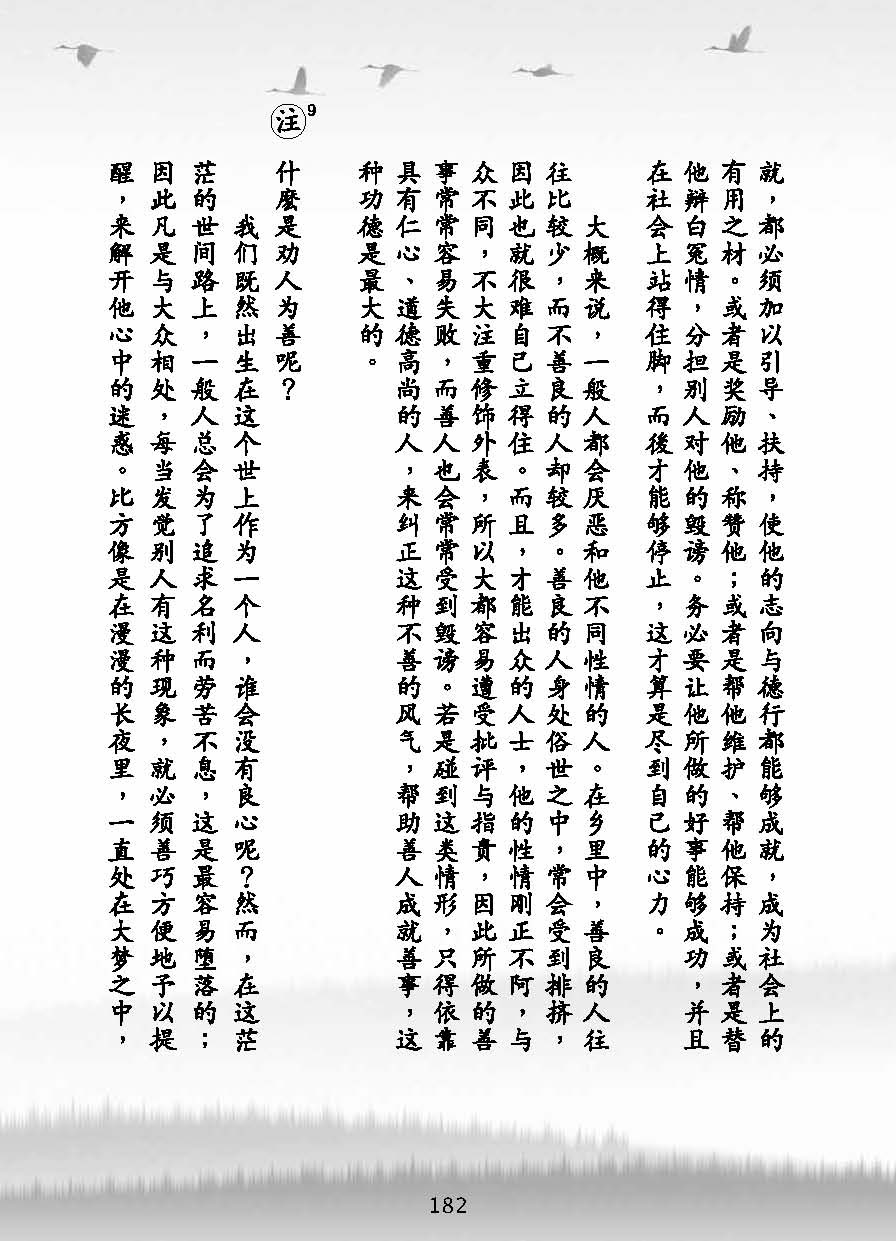 就，都必须加以引导、扶持，使他的志向与德行都能够成就，成为社会上的
有用之材。或者是奖励他、称赞他；或者是帮他维护、帮他保持；或者是替
他辩白冤情，分担别人对他的毁谤。务必要让他所做的好事能够成功，并且
在社会上站得住脚，而後才能够停止，这才算是尽到自己的心力。
大概来说，一般人都会厌恶和他不同性情的人。在乡里中，善良的人往
往比较少，而不善良的人却较多。善良的人身处俗世之中，常会受到排挤，
因此也就很难自己立得住。而且，才能出众的人士，他的性情刚正不阿，与
众不同，不大注重修饰外表，所以大都容易遭受批评与指责，因此所做的善
事常常容易失败，而善人也会常常受到毁谤。若是碰到这类情形，只得依靠
具有仁心、道德高尚的人，来纠正这种不善的风气，帮助善人成就善事，这
种功德是最大的。
注9
什麽是劝人为善呢？
我们既然出生在这个世上作为一个人，谁会没有良心呢？然而，在这茫
茫的世间路上，一般人总会为了追求名利而劳苦不息，这是最容易堕落的；
因此凡是与大众相处，每当发觉别人有这种现象，就必须善巧方便地予以提
醒，来解开他心中的迷惑。比方像是在漫漫的长夜里，一直处在大梦之中，
182